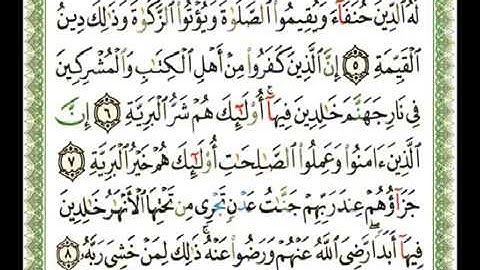 لَهُ الدِّينَ حُنَفَآءَ وَيُقِيمُوا الصَّلَوٰةَ وَيُؤْتُوا الزَّكَوٰةَ وَذَٰلِكَ دِينُ
الْقَيِّمَةِ ٥ إِنَّ الَّذِينَ كَفَرُوا مِنْ أَهْلِ الْكِتَابِ وَالْمُشْرِكِينَ
فِى نَارِ جَهَنَّمَ خَالِدِينَ فِيهَآ أُو۟لَٰٓئِكَ هُمْ شَرُّ الْبَرِيَّةِ ٦ إِنَّ
الَّذِينَ ءَامَنُوا وَعَمِلُوا الصَّالِحَاتِ أُو۟لَٰٓئِكَ هُمْ خَيْرُ الْبَرِيَّةِ ٧
جَزَآؤُهُمْ عِندَ رَبِّهِمْ جَنَّاتُ عَدْنٍ تَجْرِى مِن تَحْتِهَا الْأَنْهَارُ خَالِدِينَ
فِيهَآ أَبَدًا رَّضِىَ اللَّهُ عَنْهُمْ وَرَضُوا عَنْهُ ذَٰلِكَ لِمَنْ خَشِىَ رَبَّهُ ٨